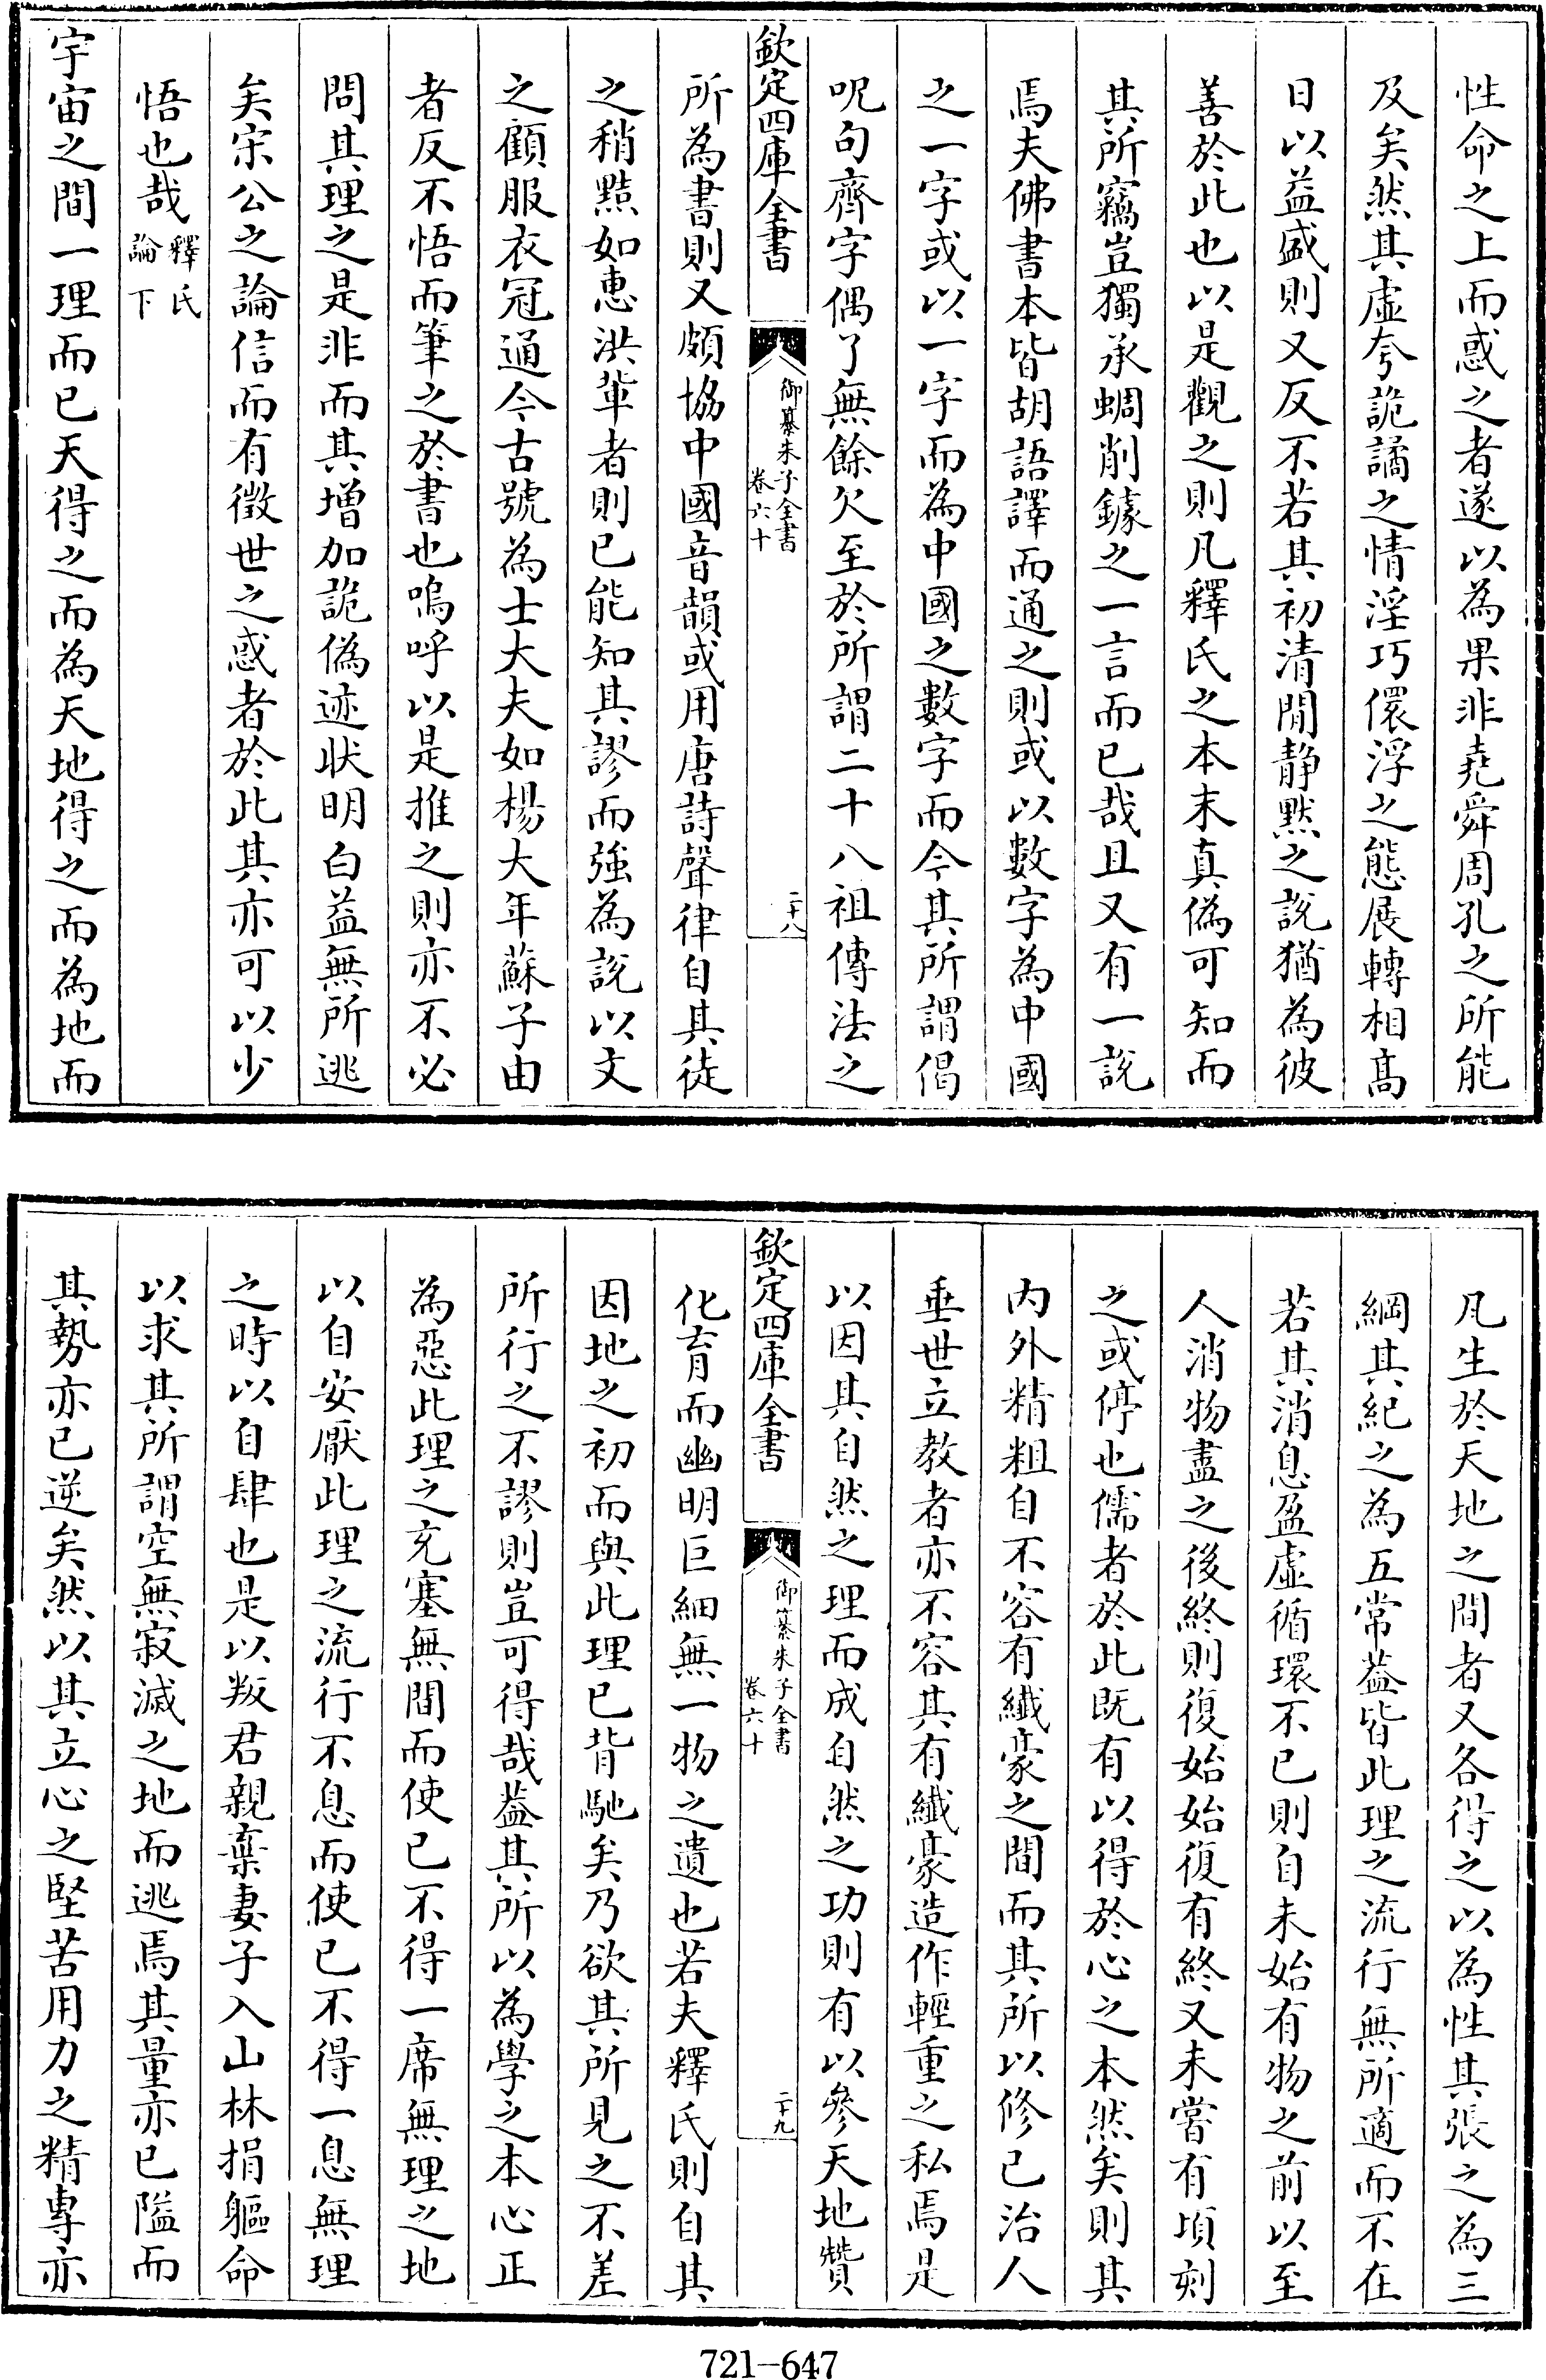 性命之上而惑之者遂以為果非堯舜周孔之所能
及矣然其虛夸詭譎之情淫巧儇浮之態展轉相髙
日以益盛則又反不若其初清閒静黙之說猶為彼
善於此也以是觀之則凡釋氏之本末真偽可知而
其所竊豈獨承蜩削鐻之一言而已哉且又有一說
焉夫佛書本皆胡語譯而通之則或以數字為中國
之一字或以一字而為中國之數字而今其所謂偈
呪句齊字偶了無餘欠至於所謂二十八祖傳法之
欽定四庫全書
御纂朱子全書
卷六十
二十八
所為書則又頗協中國音韻或用唐詩聲律自其徒
之稍黠如惠洪輩者則已能知其謬而強為說以文
之顧服衣冠通今古號為士大夫如楊大年蘇子由
者反不悟而筆之於書也嗚呼以是推之則亦不必
問其理之是非而其增加詭偽迹狀明白益無所逃
矣宋公之論信而有徵世之惑者於此其亦可以少
悟也哉釋氏
論下
宇宙之間一理而已天得之而為天地得之而為地而
凡生於天地之間者又各得之以為性其張之為三
綱其紀之為五常葢皆此理之流行無所適而不在
若其消息盈虛循環不已則自未始有物之前以至
人消物盡之後終則復始始復有終又未嘗有頃刻
之或停也儒者於此既有以得於心之本然矣則其
内外精粗自不容有纎豪之間而其所以修已治人
垂世立教者亦不容其有纎豪造作輕重之私焉是
以因其自然之理而成自然之功則有以參天地贊
欽定四庫全書
御纂朱子全書
卷六十
二十九
化育而幽明巨細無一物之遺也若夫釋氏則自其
因地之初而與此理已背馳矣乃欲其所見之不差
所行之不謬則豈可得哉葢其所以為學之本心正
為惡此理之充塞無間而使已不得一席無理之地
以自安厭此理之流行不息而使已不得一息無理
之時以自肆也是以叛君親棄妻子入山林捐軀命
以求其所謂空無寂滅之地而逃焉其量亦已隘而
其勢亦已逆矣然以其立心之堅苦用力之精専亦
721-647